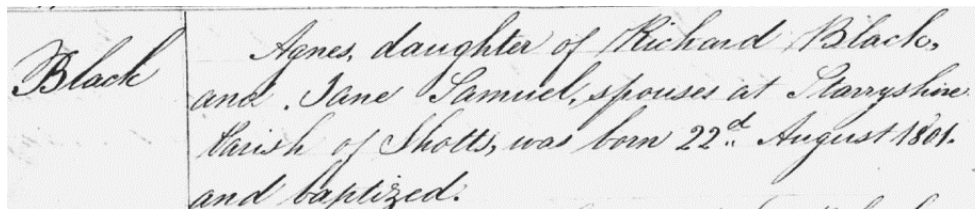 Black
Agnes, daughter of Richard Black,
and Jane Samuel, spouses at Starryshire
Parish of Shotts, was born 22d. August 1801.
and baptized.